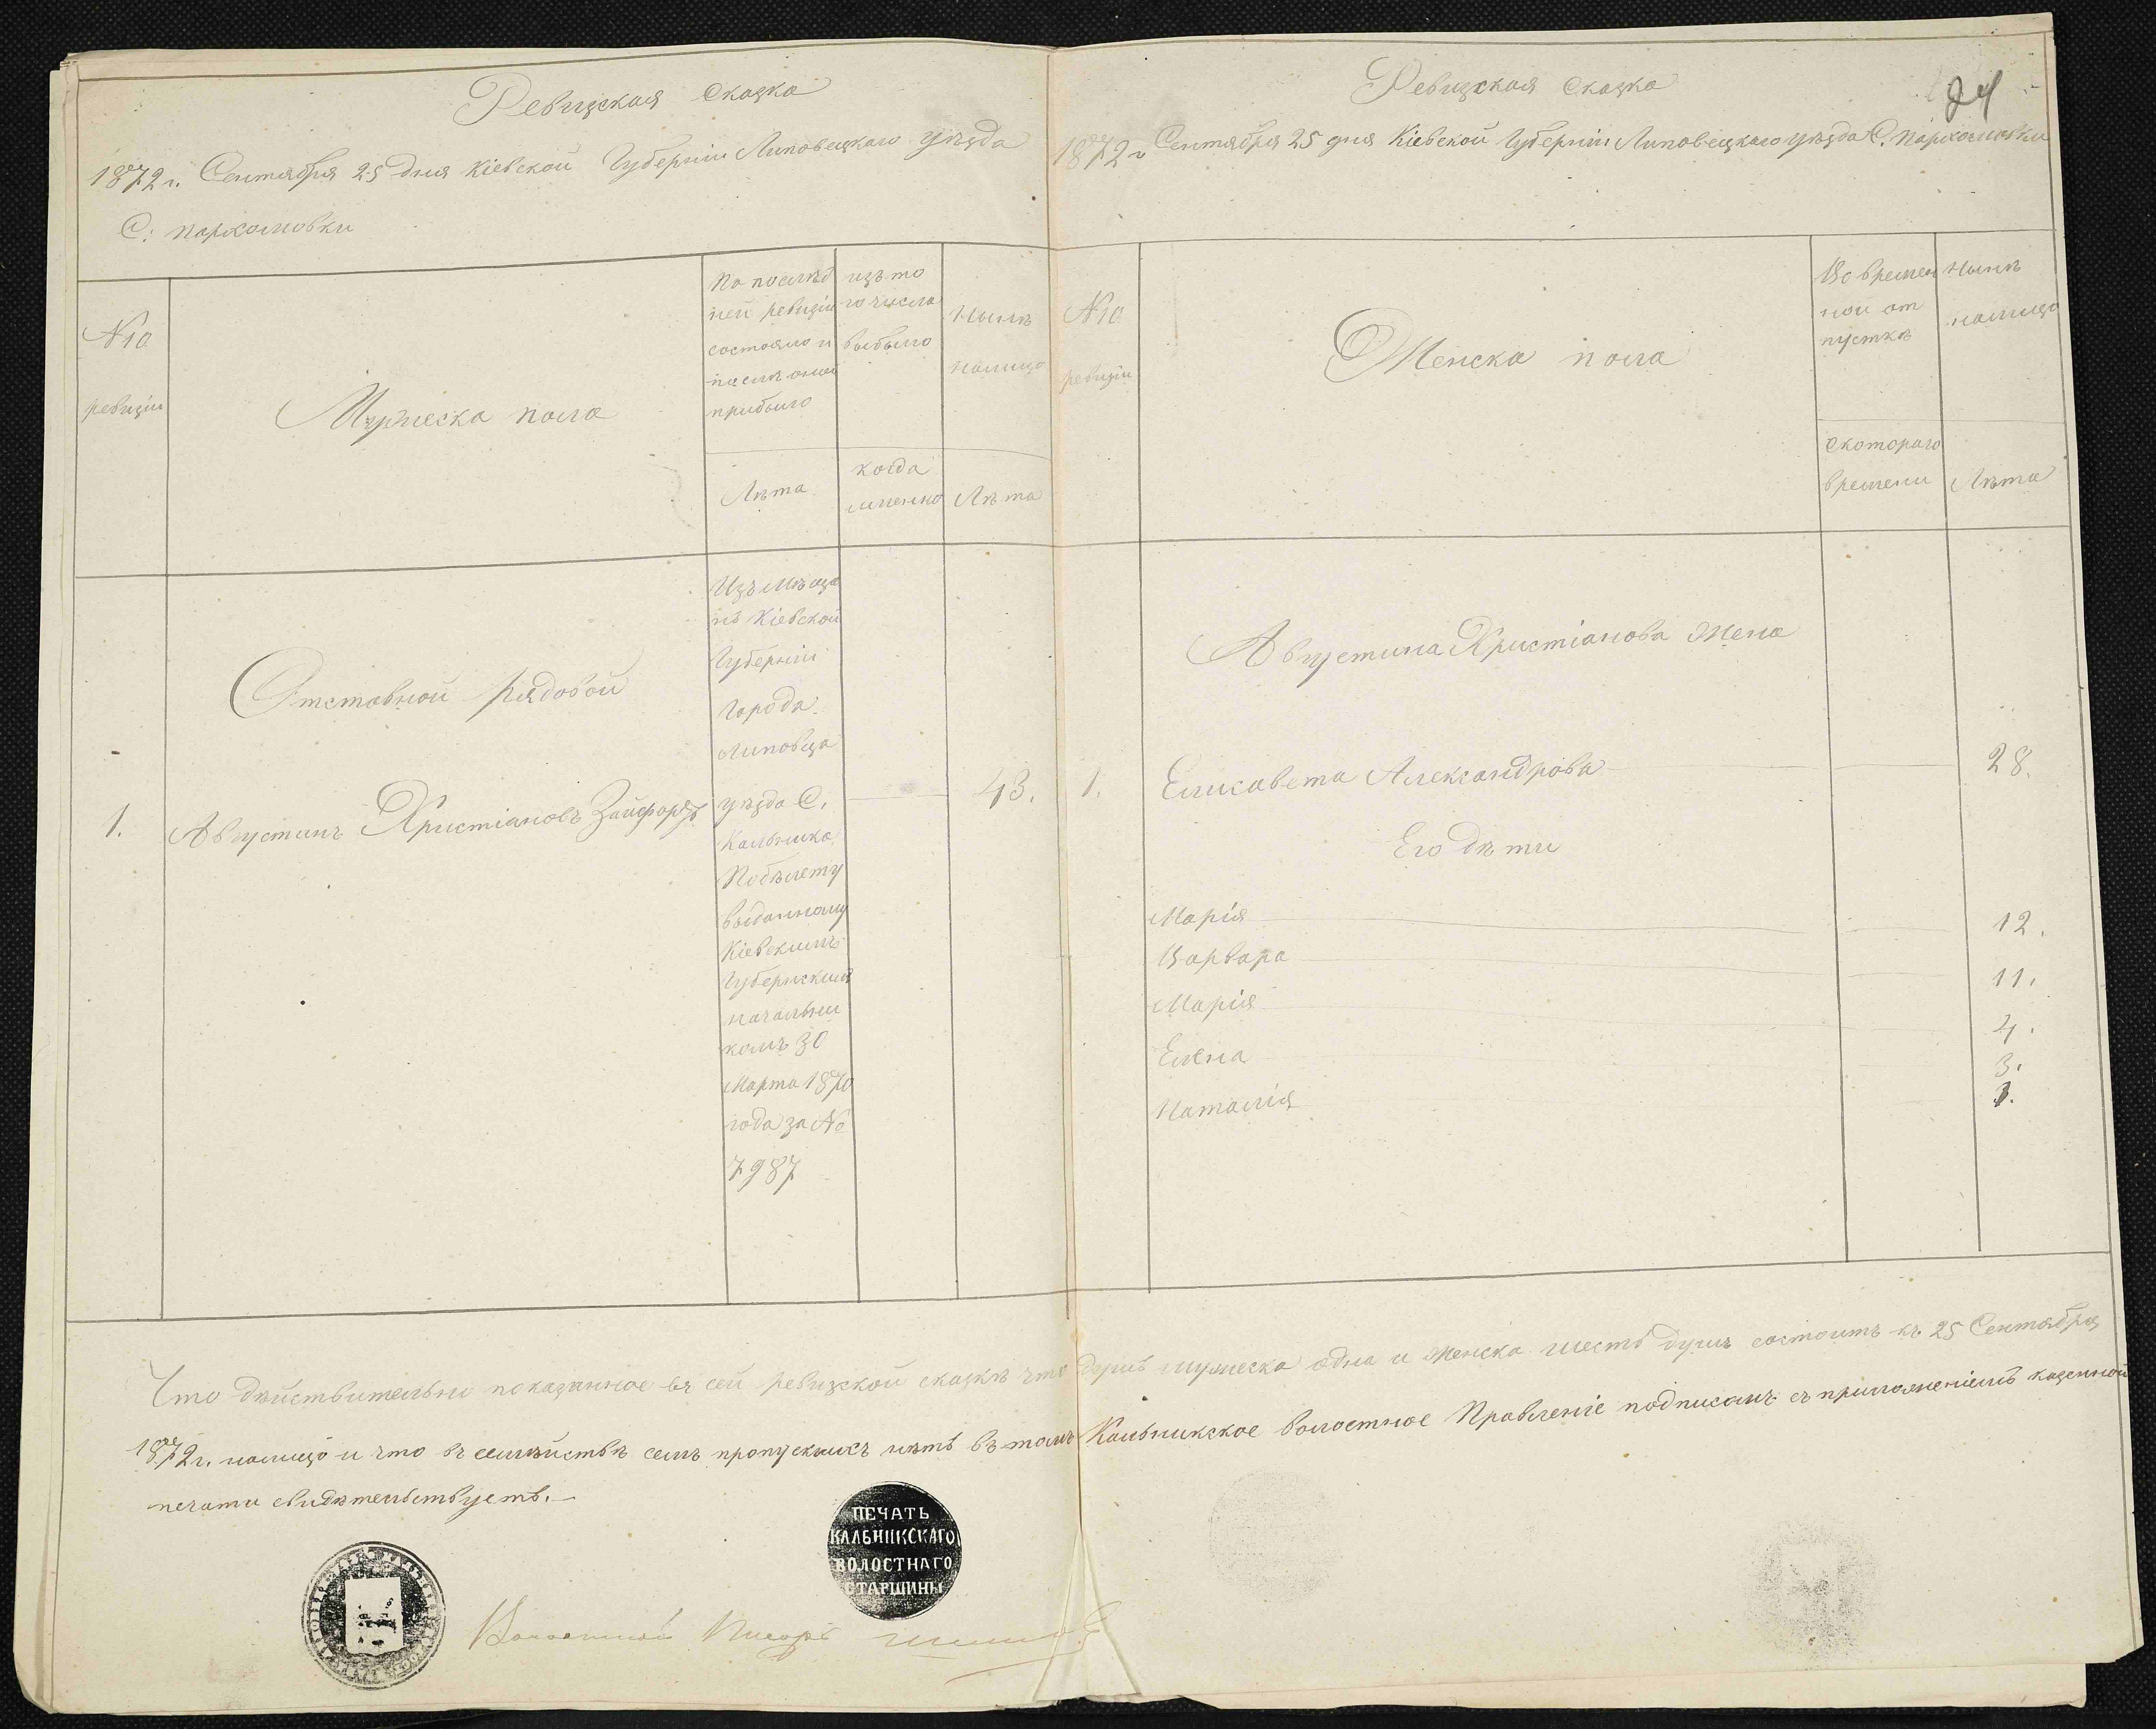 Ревизская Сказка
1872 г. Сентября 25 дня Кіевской Губерніи Липовецкаго уѣзда
С. Пархомовки
№ ревизіи
Мужеска пола
По послѣд
ней ревизіи
состояло и
послѣ оной
прибыло
Лѣта
изъ то
го числа
выбыло
когда
именно
Нынѣ
налицо
Лѣта
Отставной Рядовой
1. Августинъ Христіановъ Зайфортъ
Изъ Мѣща
нъ Кіевской
Губерніи
Города
Липовца
уѣзда С.
Кальника
Побѣлету
выданному
Кіевскимъ
Губернскимъ
начальни
комъ 30
Марта 1870
года за №
7987
43.
Ревизская Сказка
24
1872 г Сентября 25 дня Кіевской Губерніи Липовецкаго уѣзда С. Пархомовки
№ ревизіи
Женска пола
Во времен
ной от
пусткѣ
Скотораго
времени
Нынѣ
налицо
Лѣта
Августина Христіанова Жена
1. Елисавета Александрова 28.
Его дѣти
Марія 12.
Варвара 11.
Марія 4.
Елена 3.
Наталія 1.
Что дѣйствительно показанное въ сей ревизской сказкѣ что душъ мужеска одна и женска шесть душъ состоитъ къ 25 Сентября
1872 г. налицо и что въ семѣйствѣ семъ пропускныхъ нѣтъ въ томъ Кальникское Волостное Правленіе подписомъ съ приложеніемъ казенной
печати свидѣтельствуетъ.
ПЕЧАТЬ
КАЛЬНИКСКАГО
ВОЛОСТНАГО
СТАРШИНЫ
Волостной Писарь